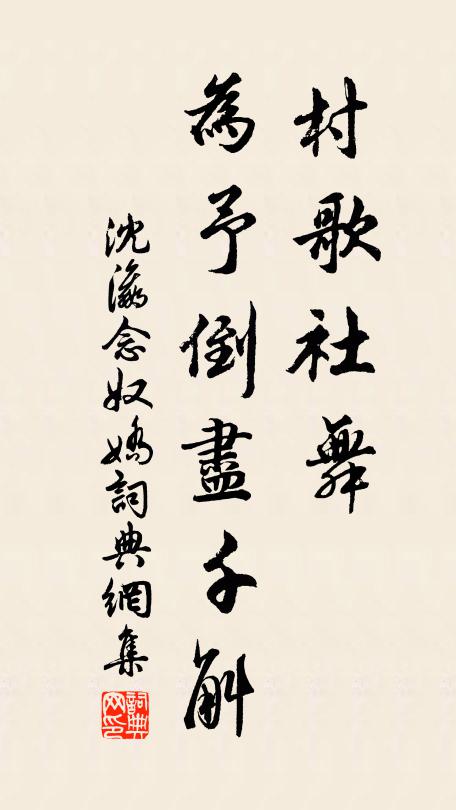 村歌社舞
為予倒盡千斛
沈瀛念奴嬌詞典網集
詞典网印